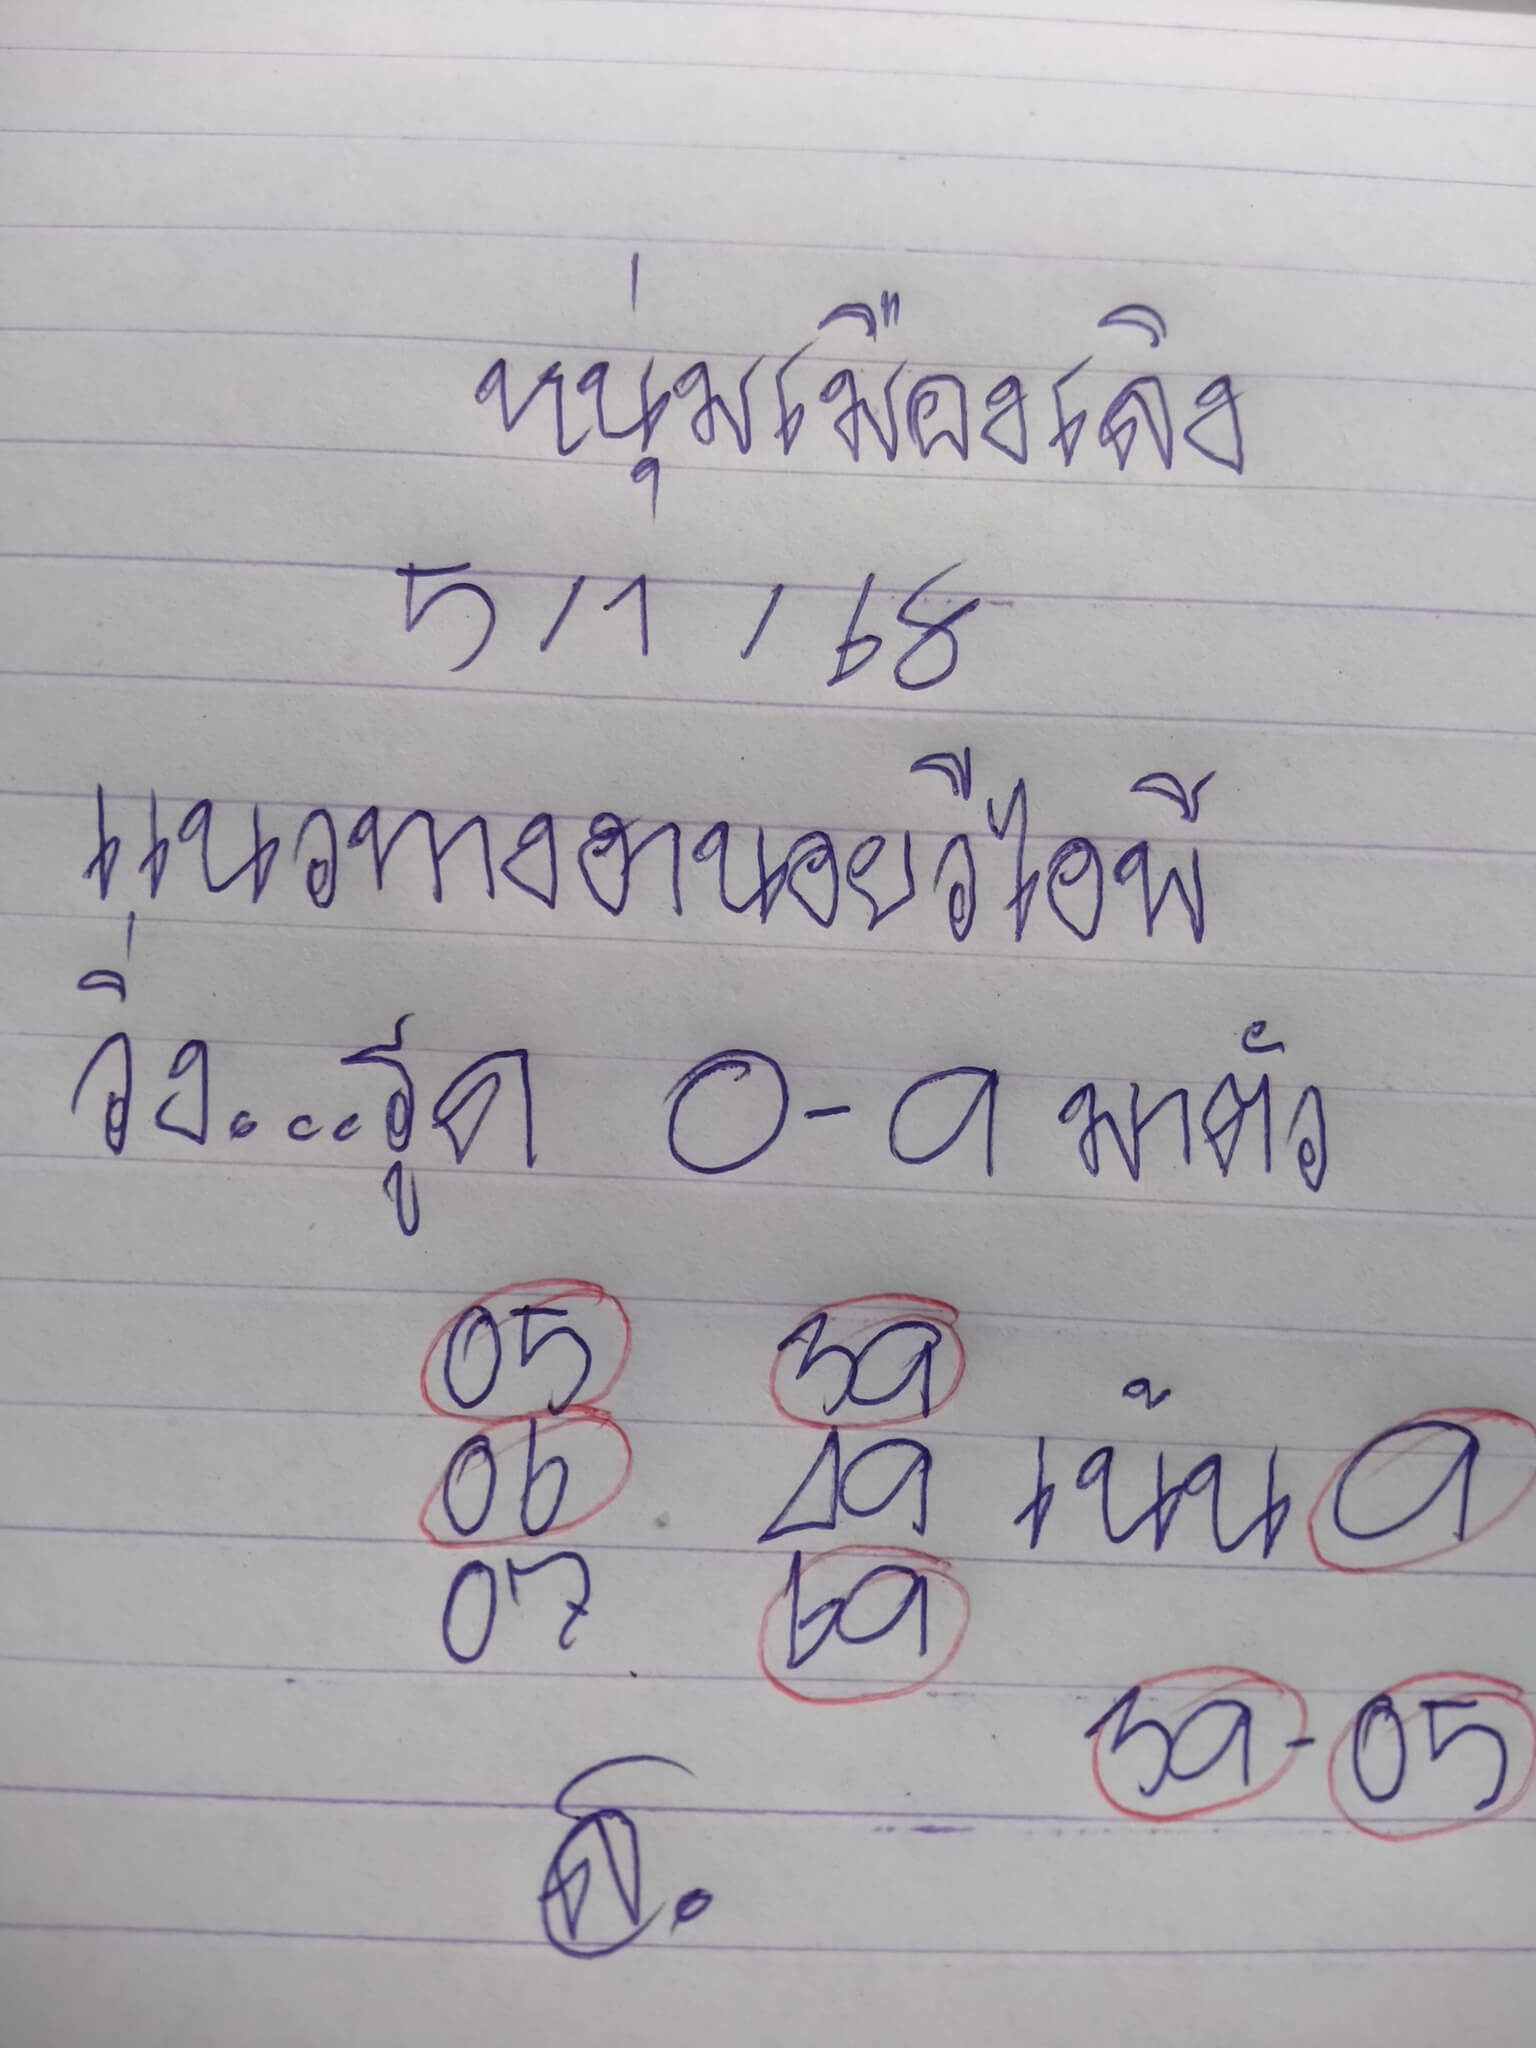 หนุ่มเมืองเลิง
5/1/68
แนวทางฮานอยวีไอพี
วิ่ง....รูด 0-9 มาตัว
05 39
06 49 เน้น 9
07 69
39-05